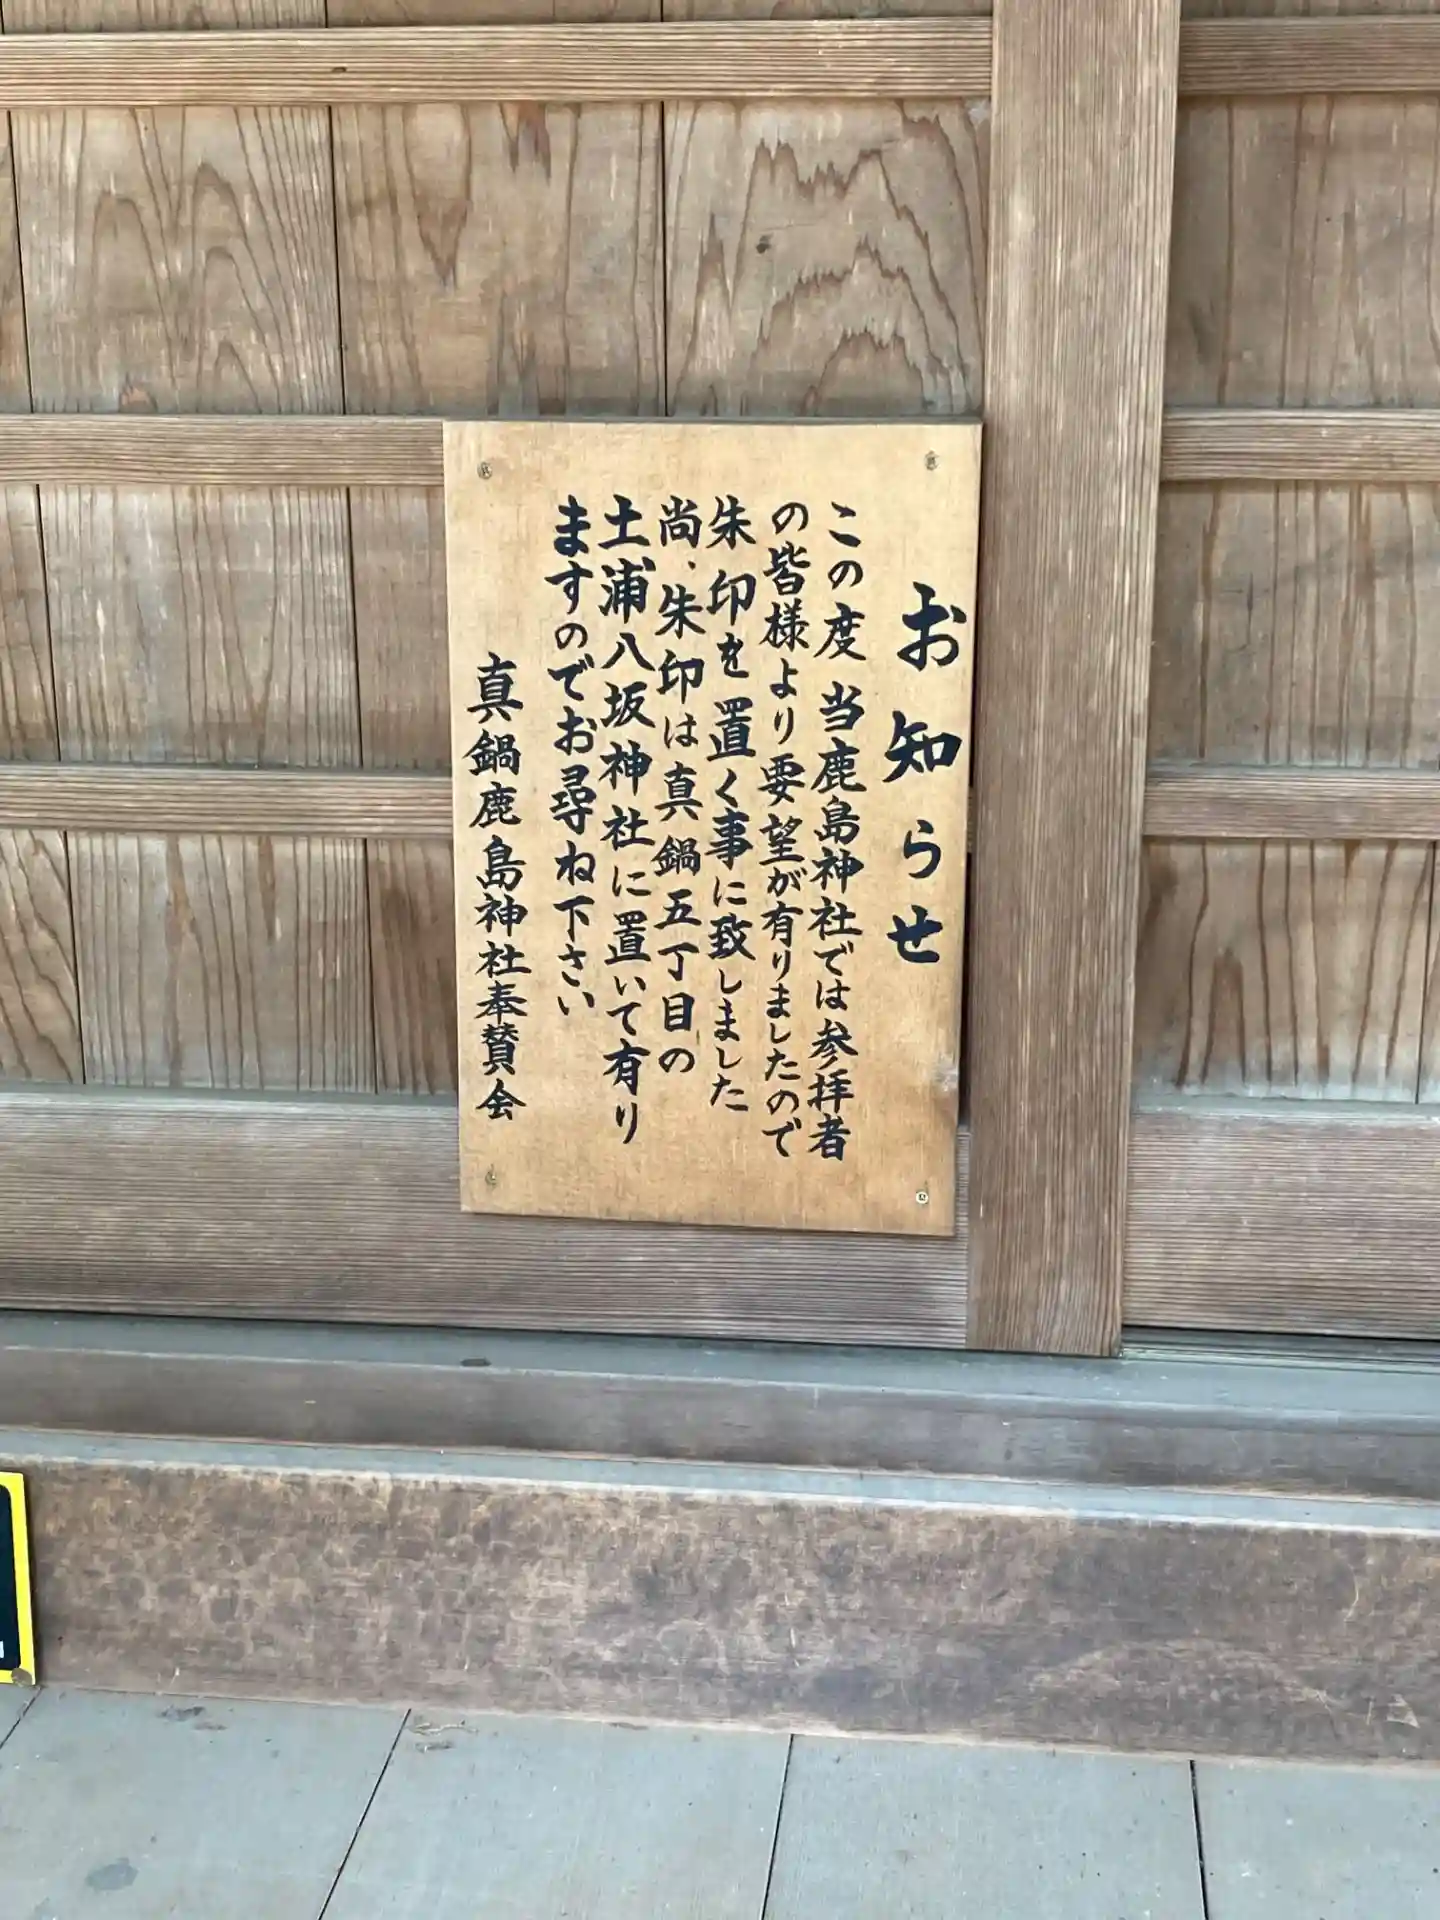 お知らせ
この度当鹿島神社では参拝者
の皆様より要望が有りましたので
朱印を置く事に致しました
尚、朱印は真鍋五丁目の
土浦八坂神社に置いて有り
ますのでお尋ね下さい
真鍋鹿島神社奉賛会